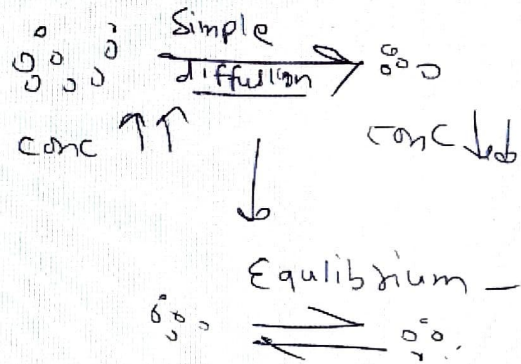 Simple
diffusion
conc ↑↑
conc ↓↓
↓
Equlibrium —